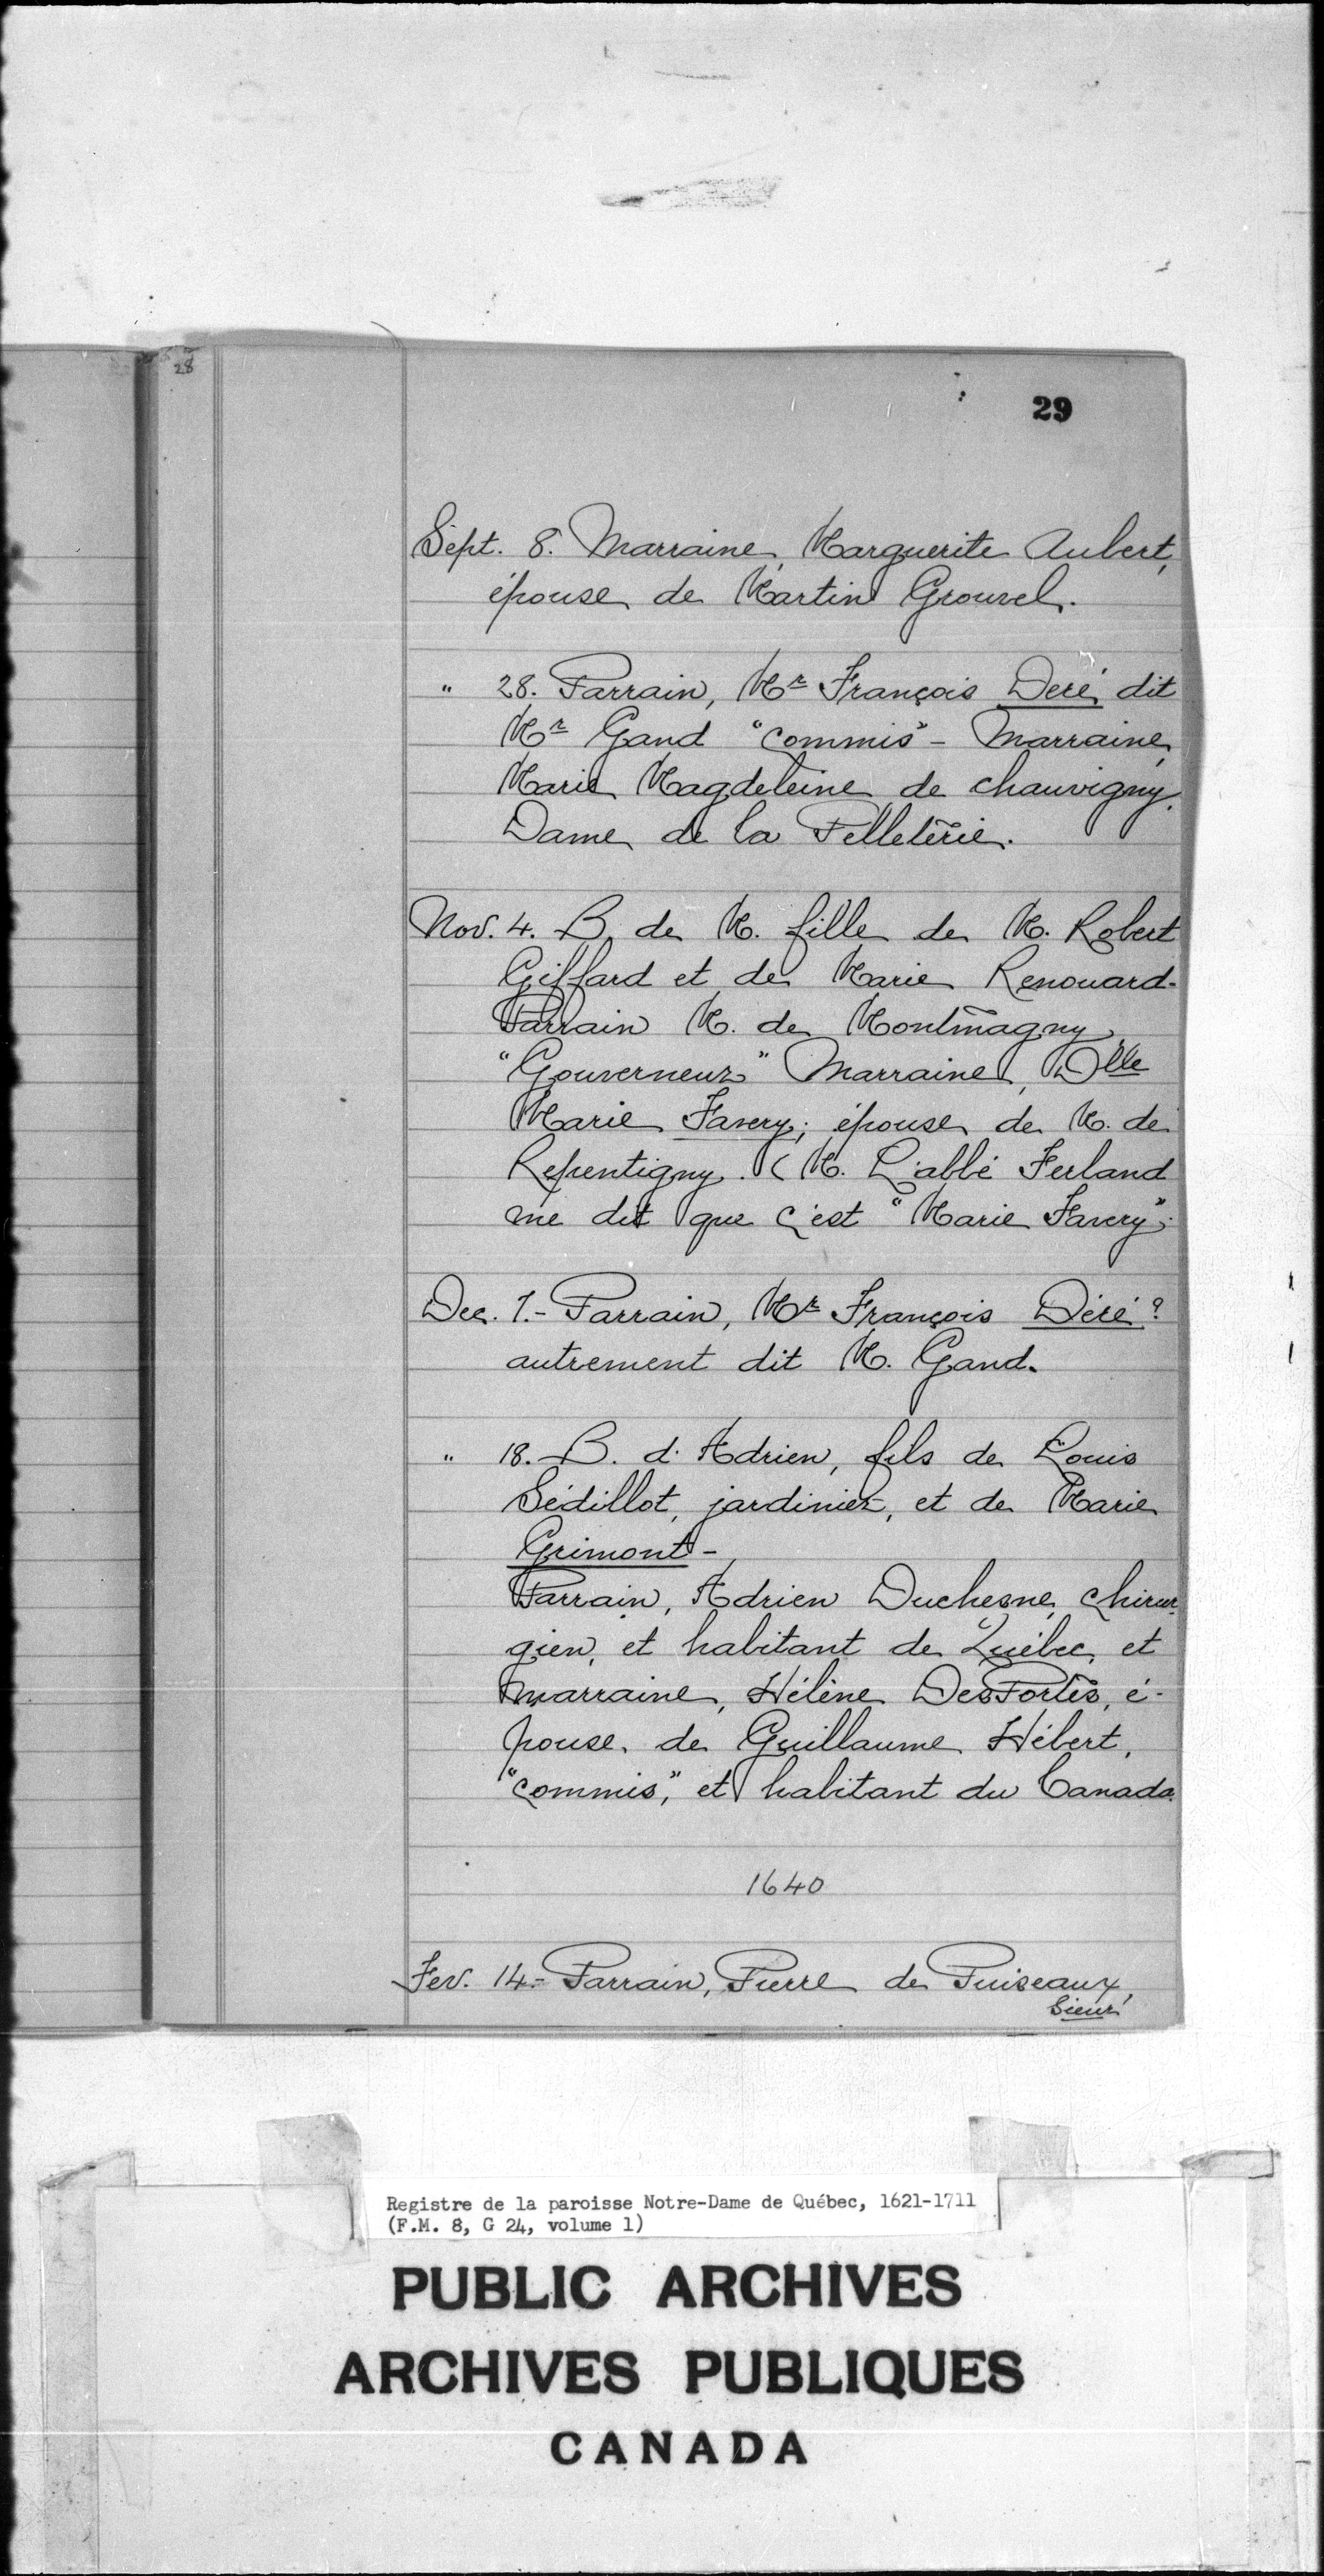 28
29
Sept. 8. Marraine, Marguerite Aubert,
épouse de Martin Grouvel.
" 28. Parrain, Mr François Deré dit
Mr Gand "commis" - Marraine,
Marie Magdeleine de chauvigny.
Dame de la Pelleterie.
Nov. 4. B. de M. fille de M. Robert
Giffard et de Marie Renouard.
Parrain M. de Montmagny,
"Gouverneur" Marraine, Dlle
Marie Favery; épouse de M. de
Repentigny. (M. L'abbé Ferland
me dit que c'est "Marie Favery".
Dec. 1.- Parrain, Mr François Déré?
autrement dit M. Gand.
" 18. B. d'Adrien, fils de Louis
Sédillot, jardinier, et de Marie
Grimont -
Parrain, Adrien Duchesne, chirur
gien, et habitant de Québec, et
marraine, Hélène DesPortes, é-
pouse de Guillaume Hébert,
"commis," et habitant du Canada.
1640
Fev. 14.- Parrain, Pierre de Puiseaux,
Sieur
Registre de la paroisse Notre-Dame de Québec, 1621-1711
(F.M. 8, G 24, volume 1)
PUBLIC ARCHIVES
ARCHIVES PUBLIQUES
CANADA